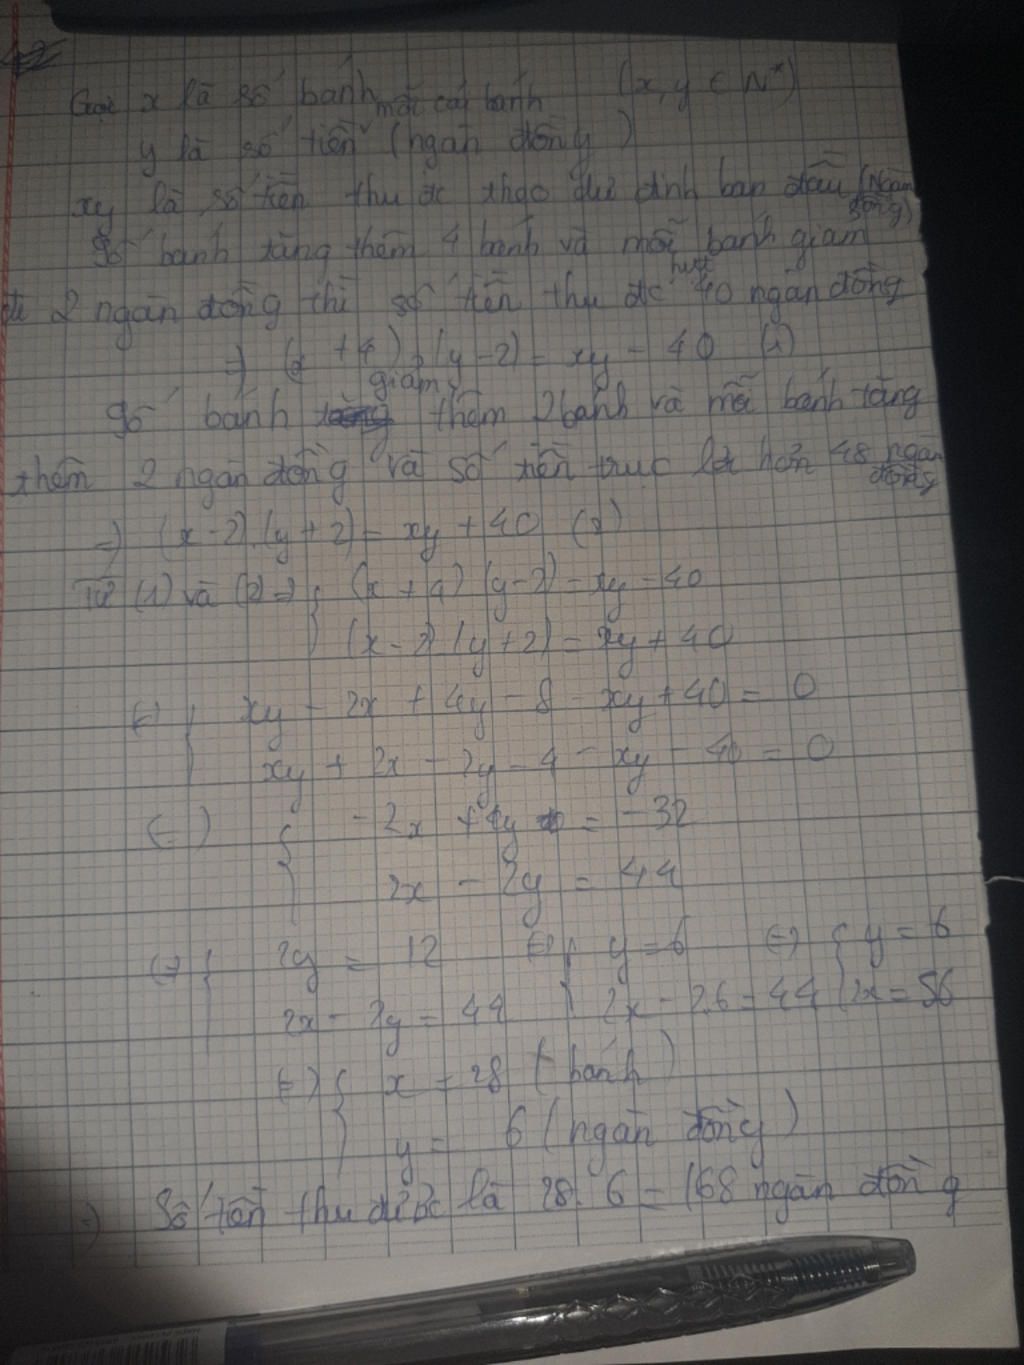 Gọi x là số bánh (x, y ∈ N*)
y là số tiền mỗi cái bánh (ngàn đồng)
xy là số tiền thu đc theo dự định ban đầu (ngàn đồng)
số bánh tăng thêm 4 bánh và mỗi bánh giảm
đi 2 ngàn đồng thì số tiền thu đc hụt 40 ngàn đồng
=> (x + 4).(y - 2) = xy - 40 (1)
số bánh giảm thêm 2 bánh và mỗi bánh tăng
thêm 2 ngàn đồng và số tiền hơn 48 ngàn đồng
=> (x - 2).(y + 2) = xy + 40 (2)
Từ (1) và (2) => { (x + 4) (y - 2) = xy - 40
(x - 2) (y + 2) = xy + 40
(=) { xy - 2x + 4y - 8 - xy + 40 = 0
xy + 2x - 2y - 4 - xy - 40 = 0
(=) { - 2x + 4y = - 32
2x - 2y = 44
(=) { 2y = 12 (=) { y = 6 (=) { y = 6
2x - 2y = 44 2x - 2.6 = 44 2x = 56
(=) { x = 28 (bánh)
y = 6 (ngàn đồng)
=) Số tiền thu được là 28. 6 = 168 ngàn đồng